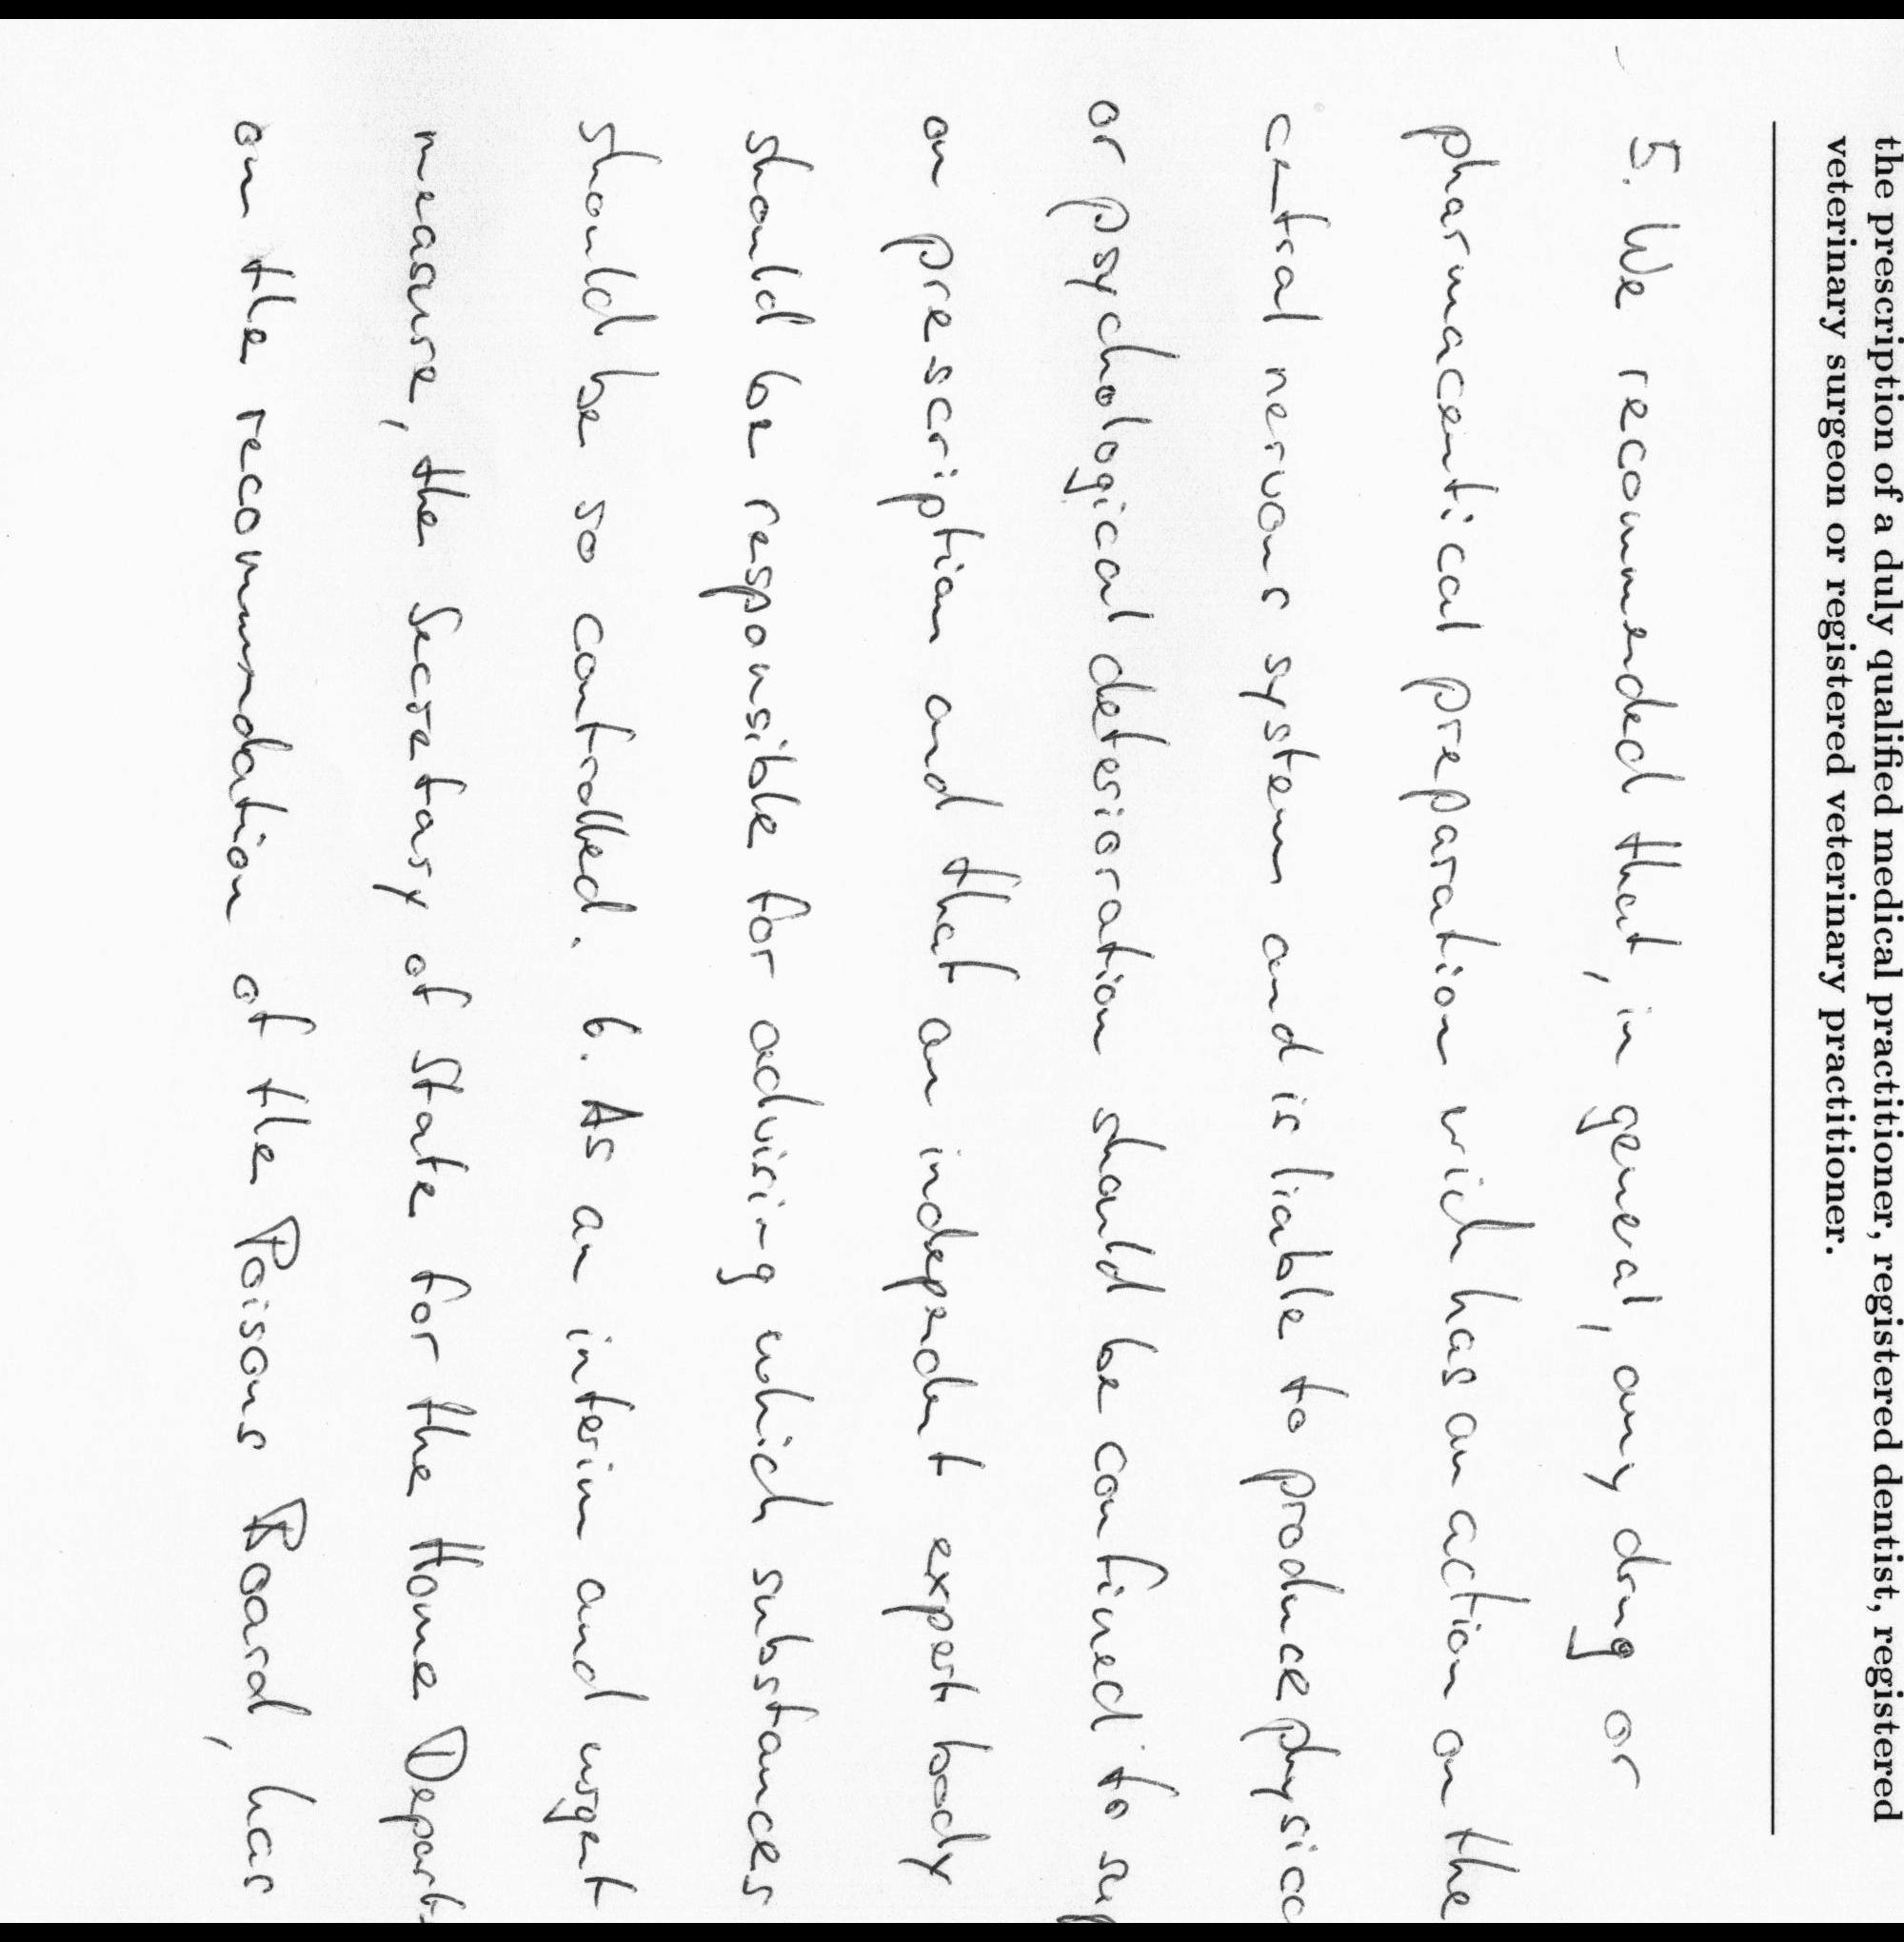 the prescription of a duly qualified medical practitioner, registered dentist, registered
veterinary surgeon or registered veterinary practitioner.
5. We recommended that, in general, any drug or
pharmaceutical preparation wich has an action on the
central nervous system and is liable to produce physica
or psychological deterioration should be confined to sup
on prescription and that an independent expert body
should be responsible for advising which substances
should be so controlled. 6. As an interim and urgent
measure, the Secretary of State for the Home Depart-
on the recommendation of the Poisons Board, has